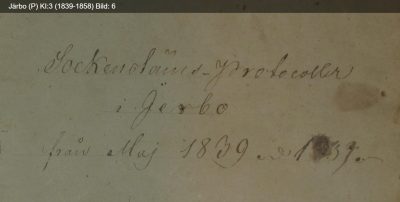 Järbo (P) KI:3 (1839-1858) Bild: 6
Sockenstäms-Protocoller
i Jerbo
från Maj 1839